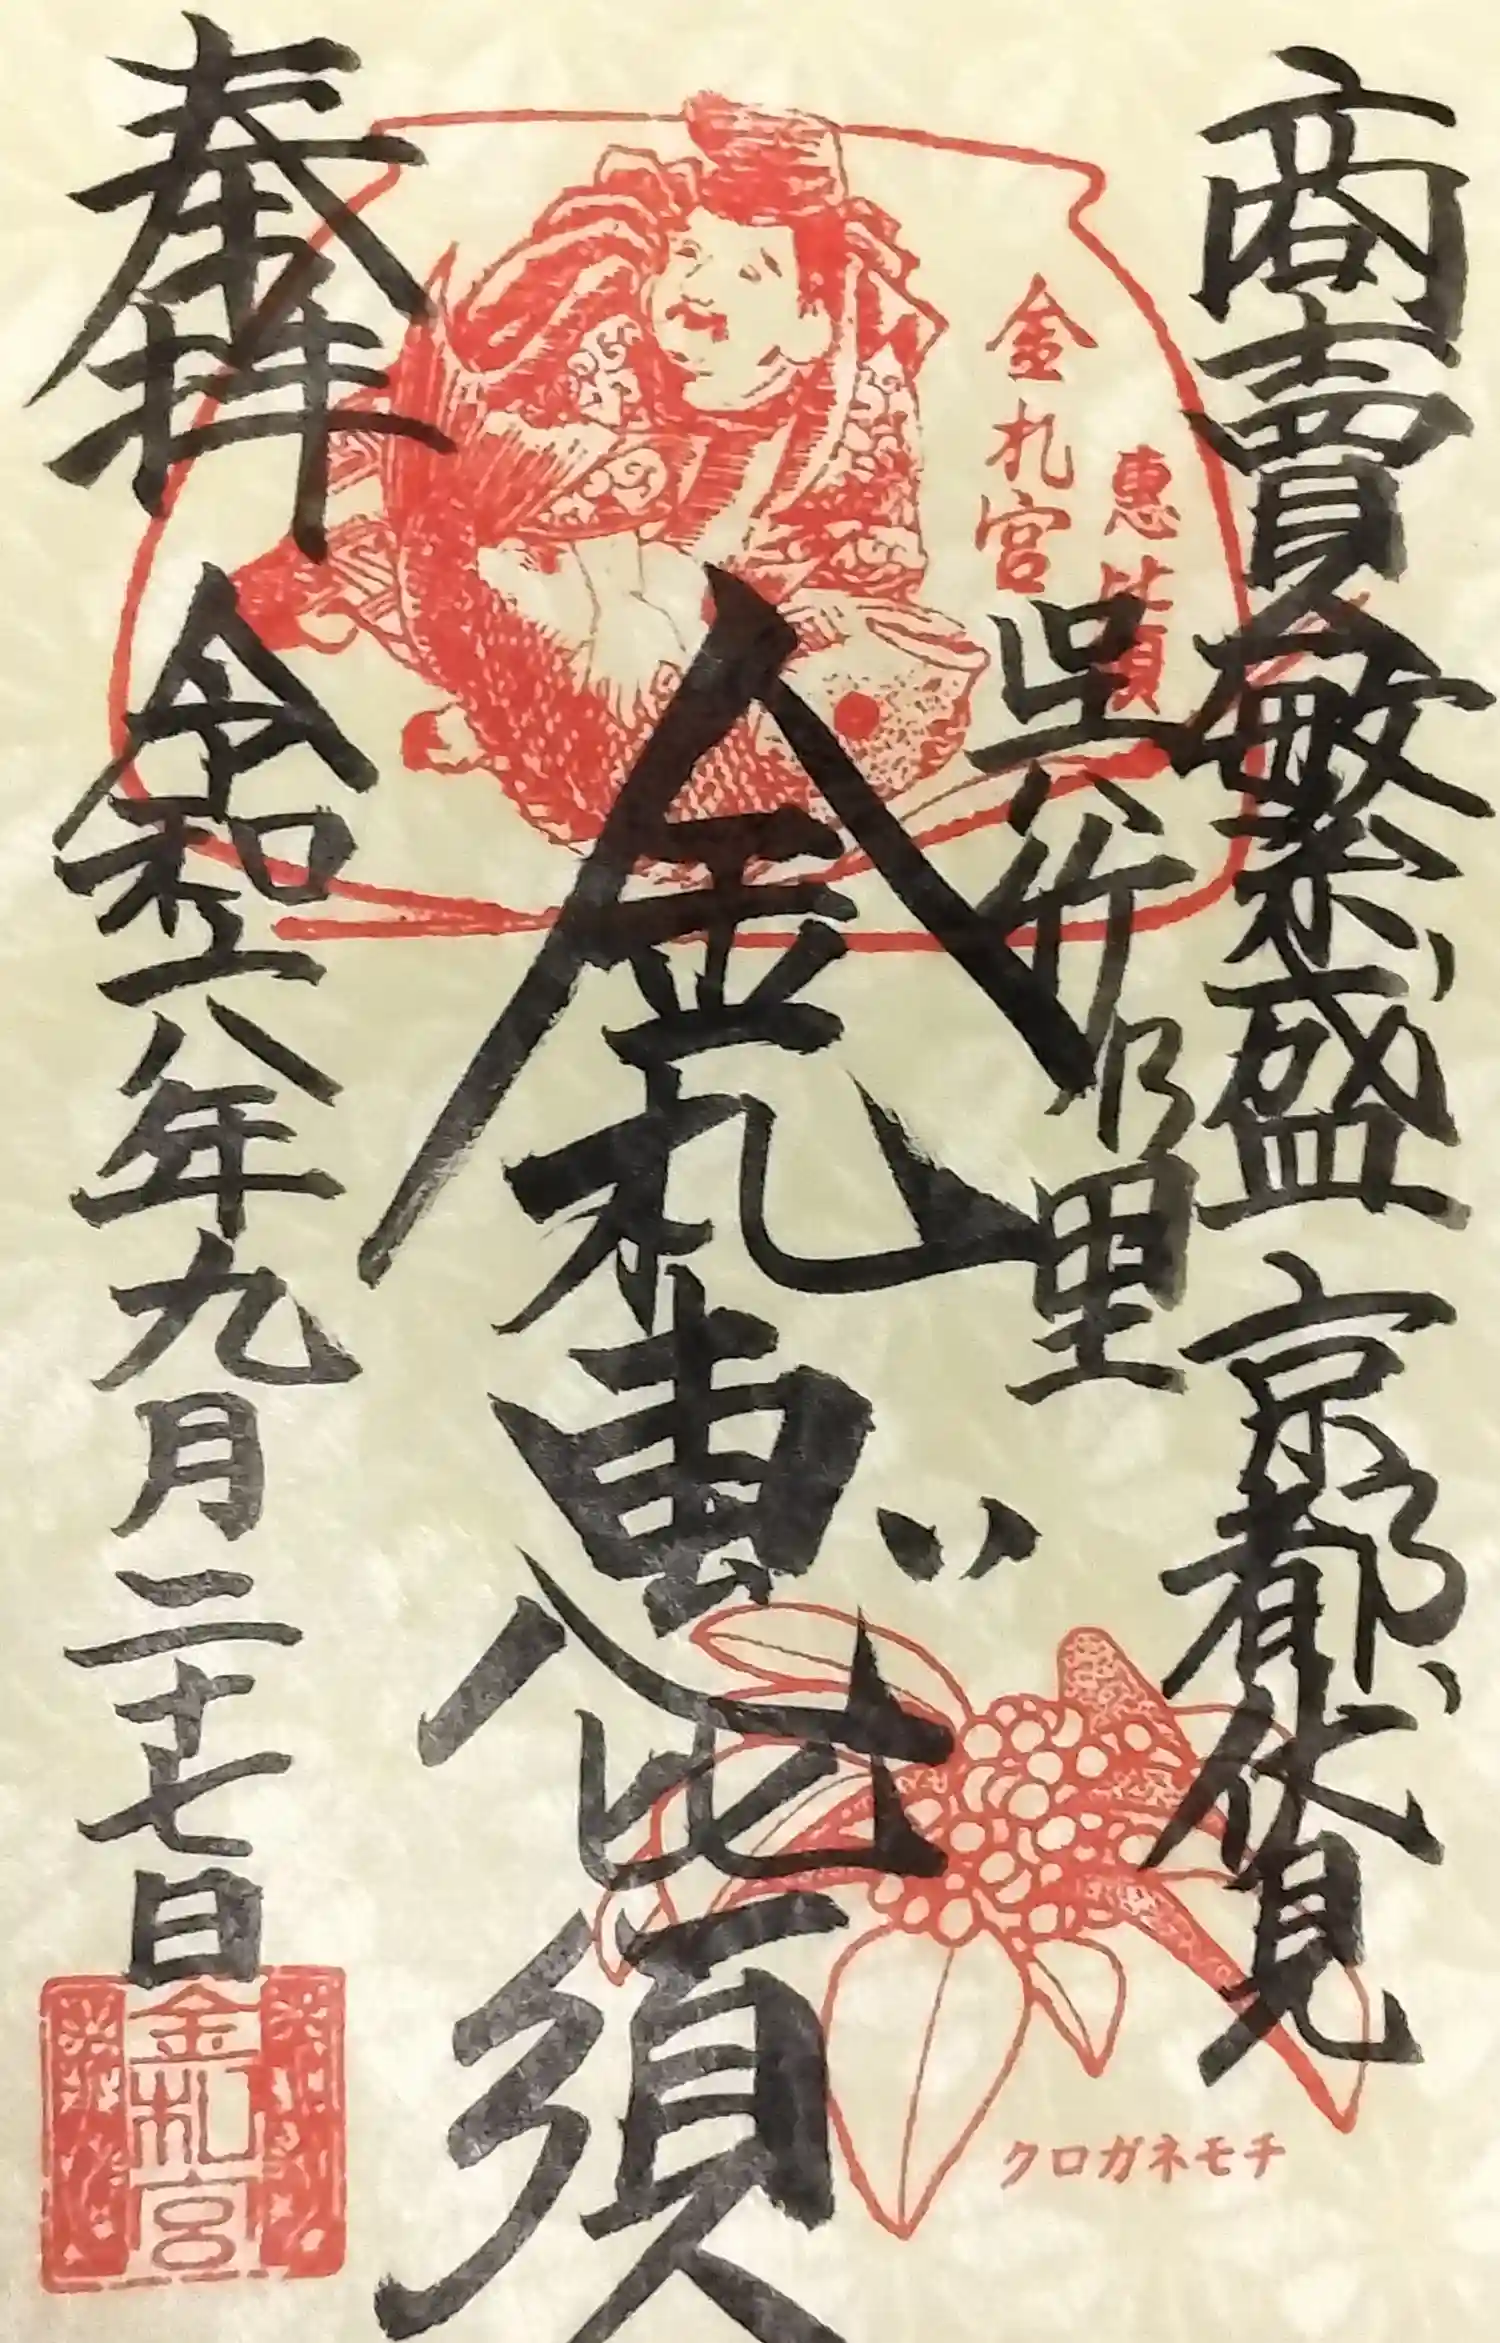 商賣繁盛 京都伏見
呉竹乃里
惠比須
金札宮
金札惠比須
奉拝 令和六年九月二十七日
金札宮
クロガネモチ